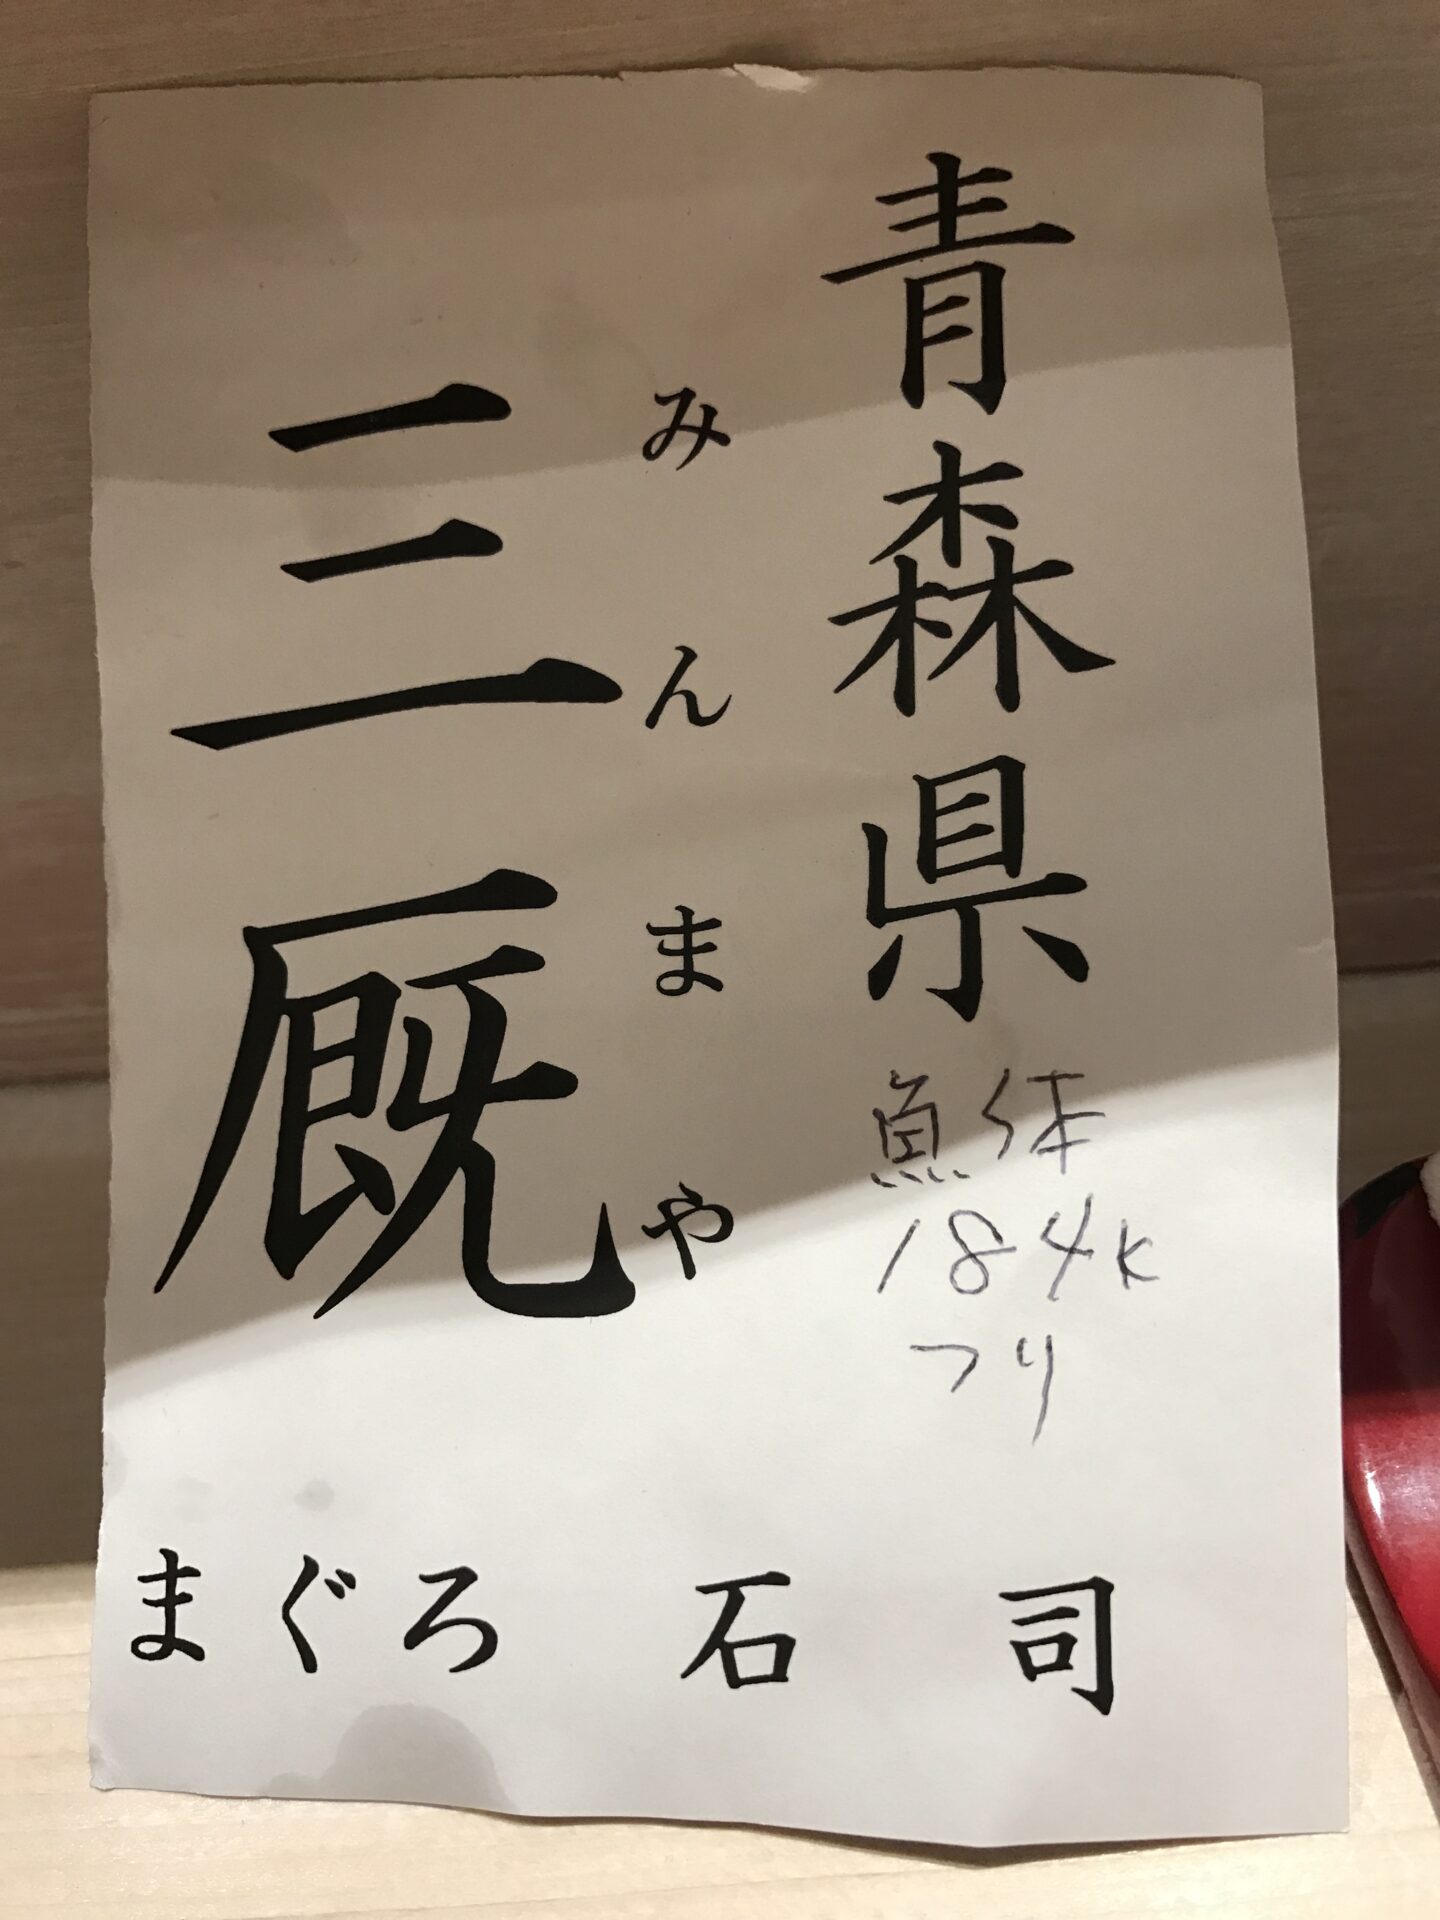 青森県
魚体
184K
つり
みんまや
三厩
まぐろ 石司